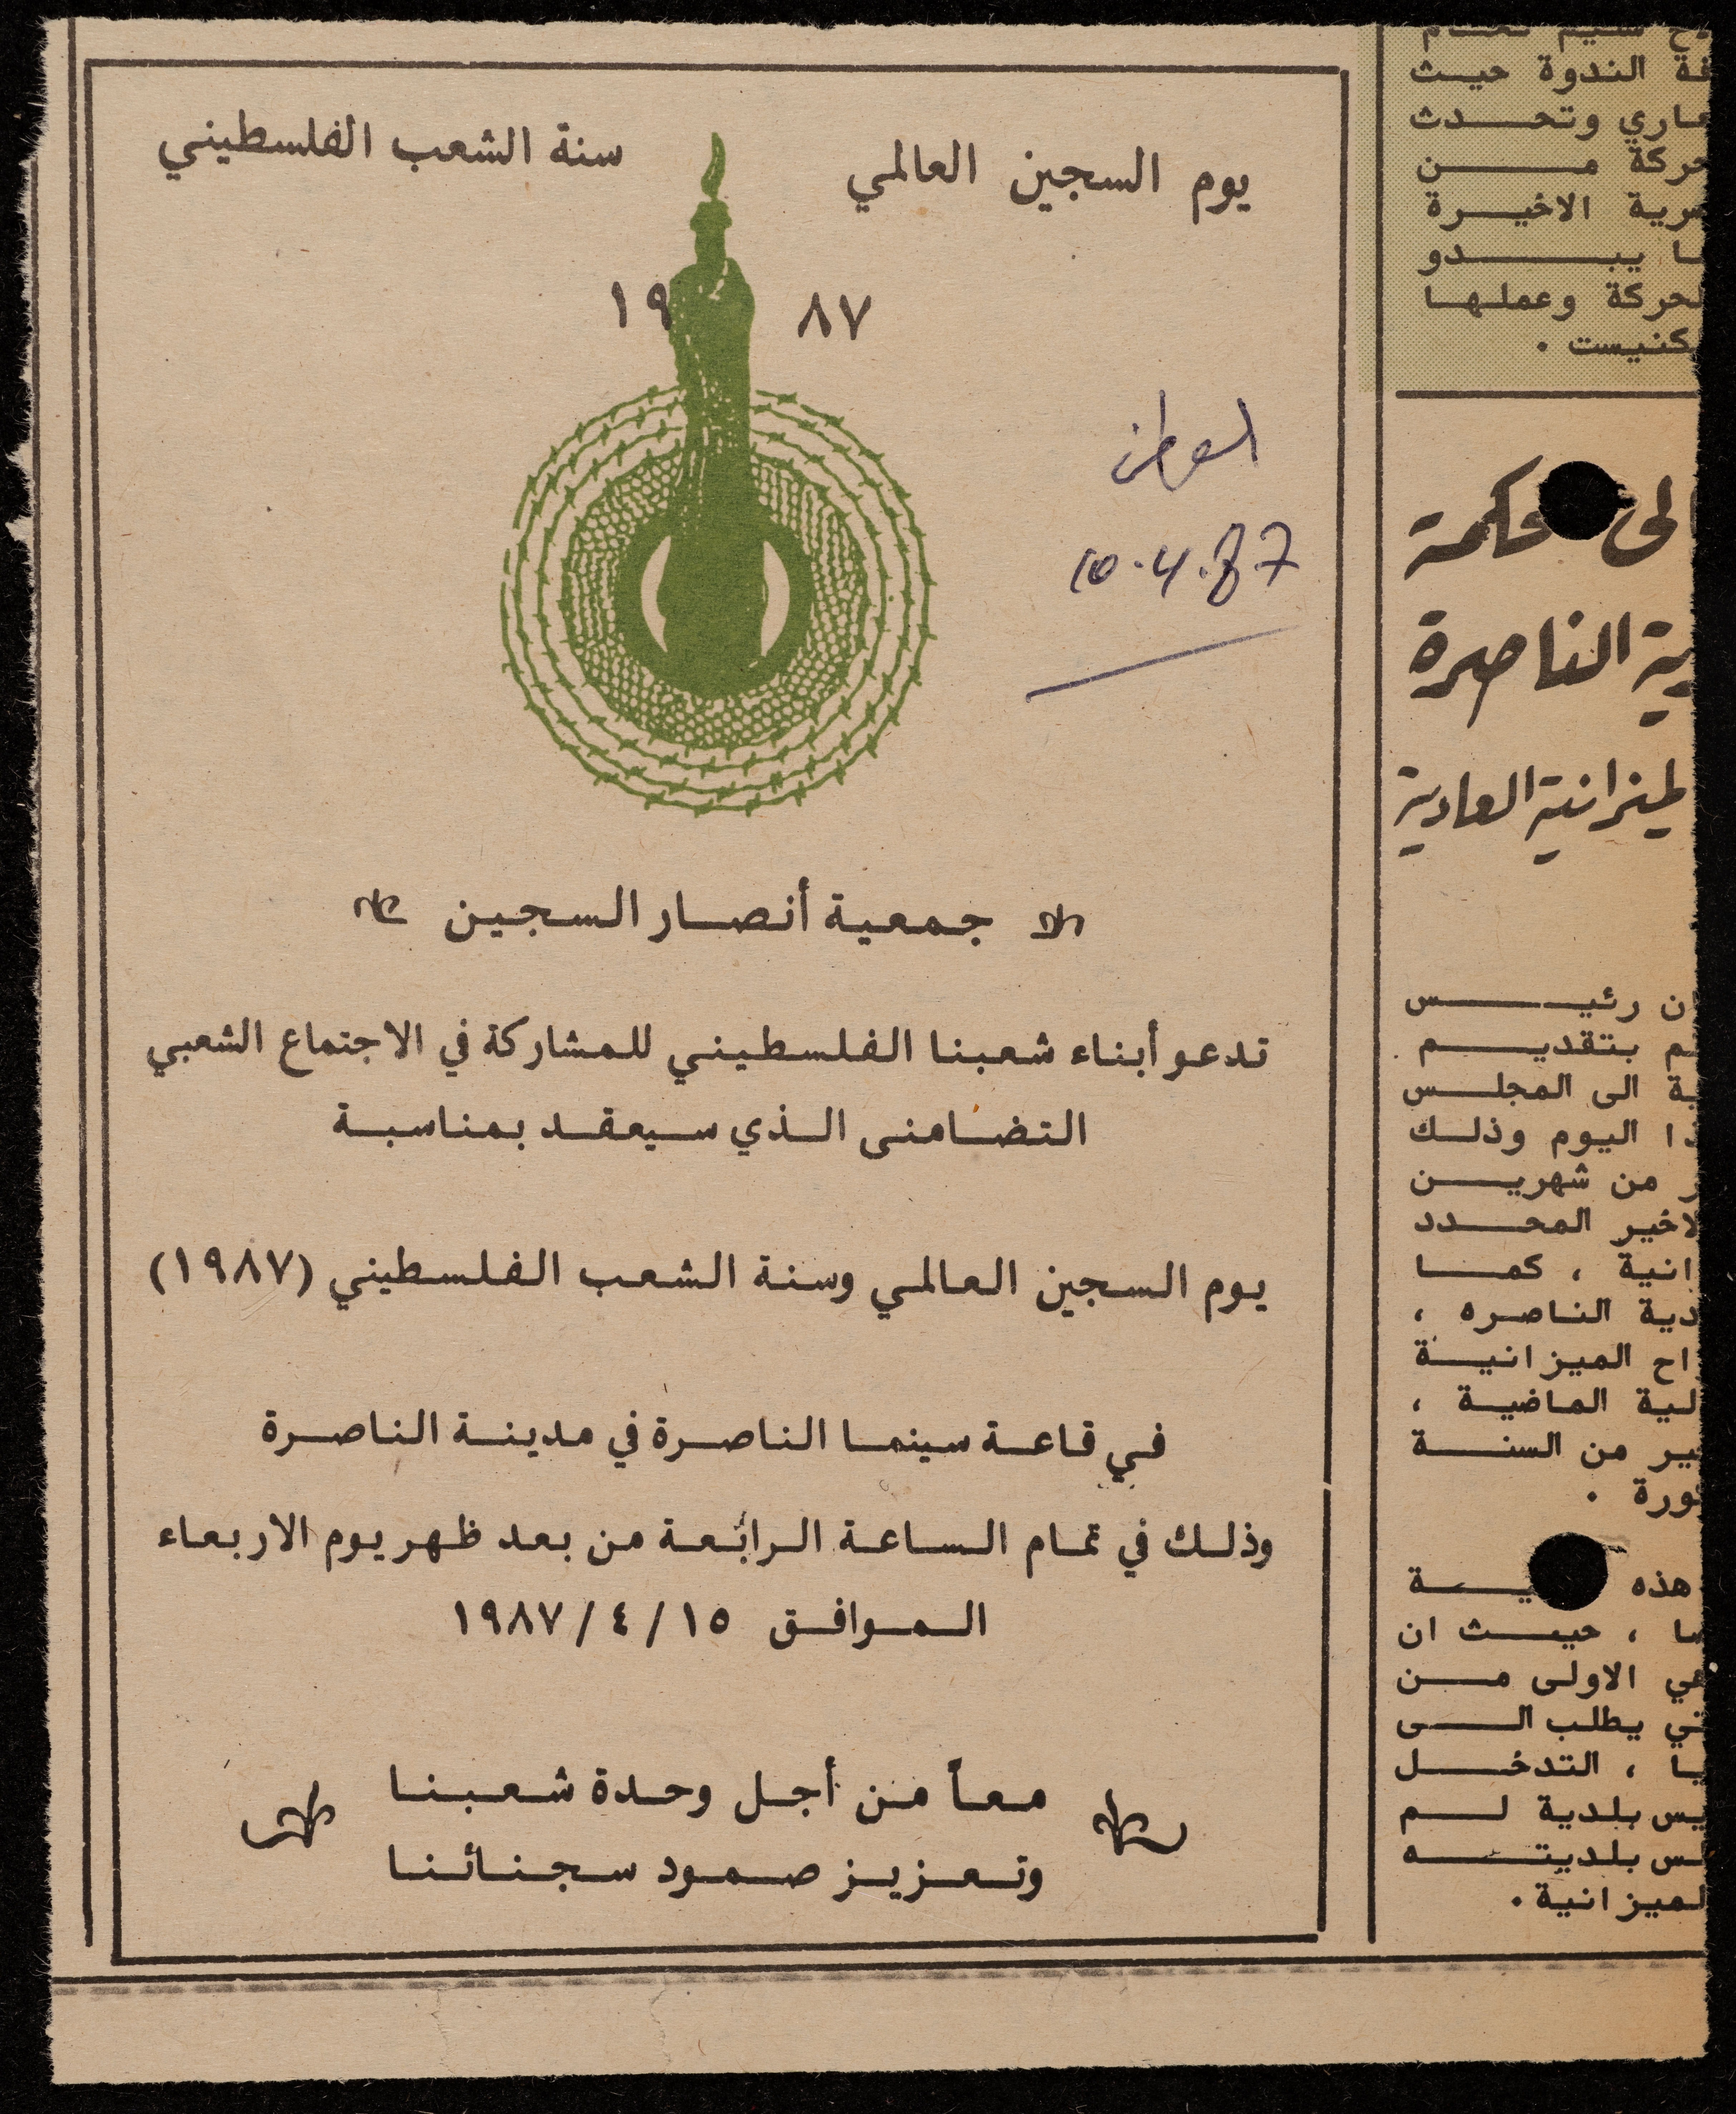 يوم السجين العالمي
سنة الشعب الفلسطيني
١٩ ٨٧
الوطن
10.4.87
جمعية أنصار السجين
تدعو أبناء شعبنا الفلسطيني للمشاركة في الاجتماع الشعبي
التضامنى الذي سيعقد بمناسبة
يوم السجين العالمي وسنة الشعب الفلسطيني (١٩٨٧)
في قاعة سينما الناصرة في مدينة الناصرة
وذلك في تمام الساعة الرابعة من بعد ظهر يوم الاربعاء
الموافق ١٥ / ٤ / ١٩٨٧
معاً من أجل وحدة شعبنا
وتعزيز صمود سجنائنا
الندوة حيث
وتحدث
من
الاخيرة
يبدو
وعملها
كنيست .
الناصرة
العادية
رئيس
بتقديم
الى المجلس
اليوم وذلك
من شهرين
المحدد
، كما
الناصره ،
الميزانية
الماضية ،
من السنة
هذه
، حيث ان
الاولى من
يطلب الى
، التدخل
بلدية لم
بلديته
لميزانية .